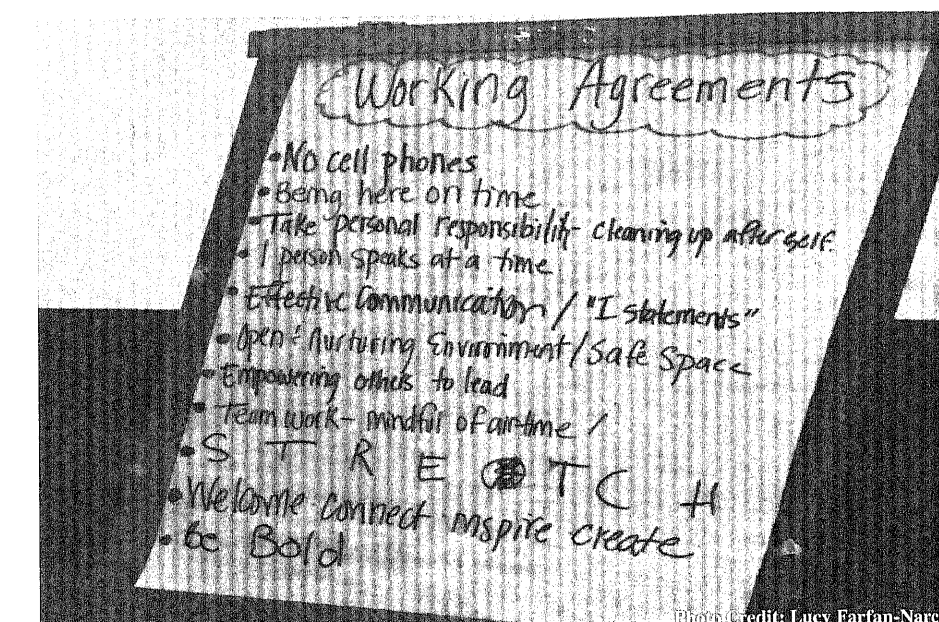 Working Agreements
• No cell phones
• Being here on time
• Take personal responsibility - cleaning up after self.
• 1 person speaks at a time
• Effective Communication / "I statements"
• Open & Nurturing Environment / Safe Space
• Empowering others to lead
• Team work - mindful of airtime /
• S T R E T C H
• Welcome connect inspire create
• be Bold
Photo Credit: Lucy Farfan-Narc